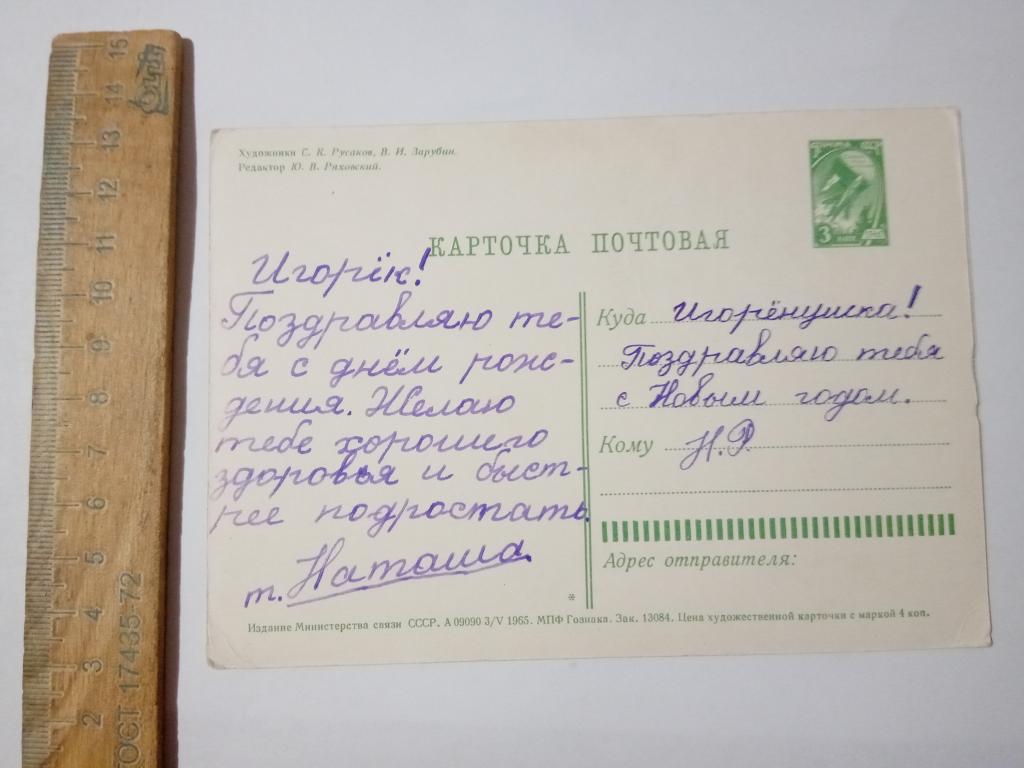 Художники С. К. Русаков, В. И. Зарубин.
Редактор Ю. В. Ряховский.
КАРТОЧКА ПОЧТОВАЯ
Игорёк!
Поздравляю те-
бя с днём рож-
дения. Желаю
тебе хорошего
здоровья и быст-
рее подростать.
т. Наташа
Куда Игорёнушка!
Поздравляю тебя
с Новым годом.
Кому Н.Р
Адрес отправителя:
Издание Министерства связи СССР. А 09090 3/V 1965. МПФ Гознака. Зак. 13084. Цена художественной карточки с маркой 4 коп.
3
15
14
13
12
11
10
9
8
7
6
5
4
3
2
ГОСТ 17435-72